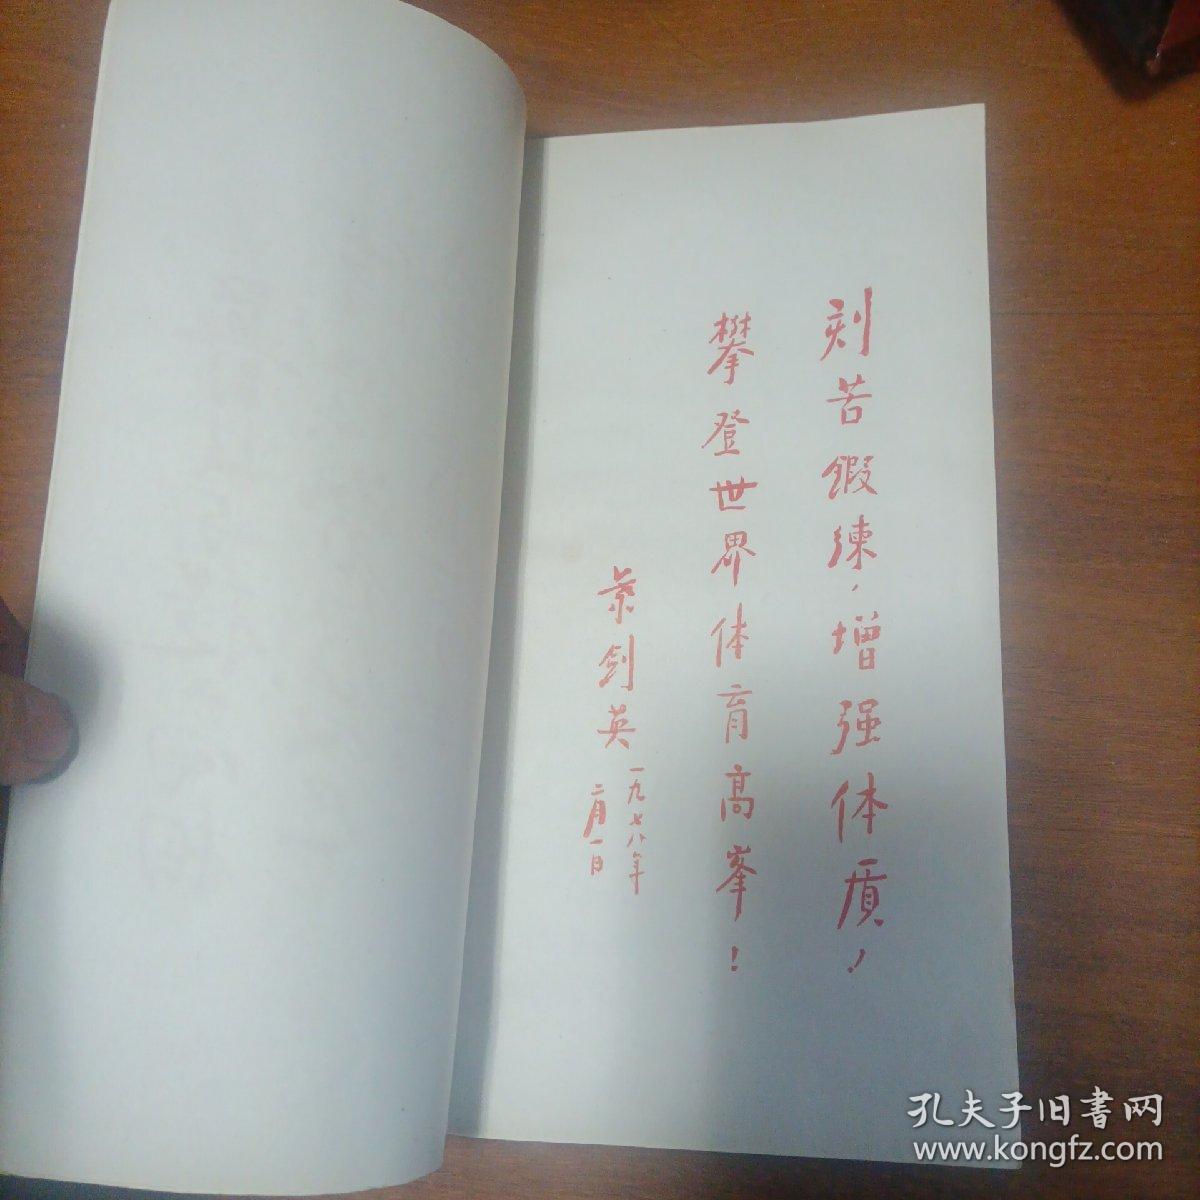 刻苦锻练，增强体质，
攀登世界体育高峯！
叶剑英
一九七八年
二月一日
孔夫子旧書网
www.kongfz.com